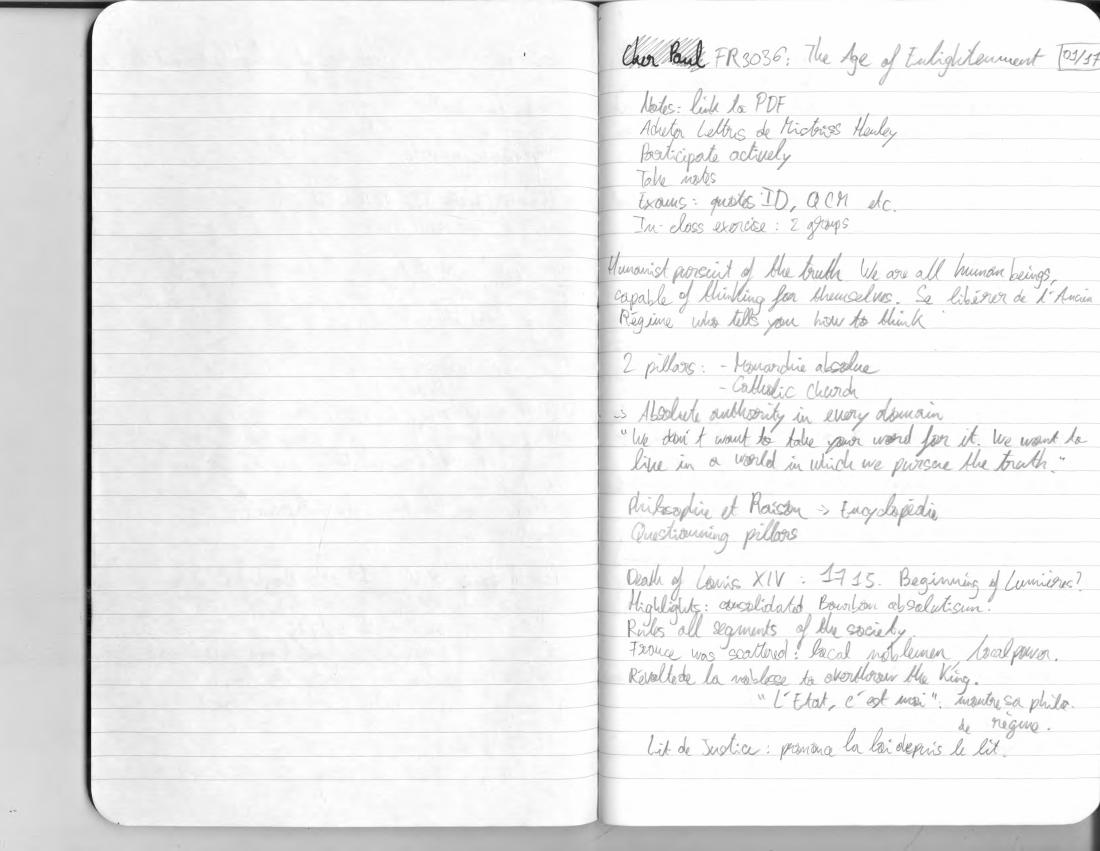 Cher Paul FR3036: The Age of Enlightenment 01/17
Notes: link to PDF
Acheter Lettres de Mistriss Henley
Participate actively
Take notes
Exams: quotes ID, QCM etc.
In-class exercise: 2 groups
Humanist pursuit of the truth We are all human beings,
capable of thinking for themselves. Se libérer de l'Ancien
Régime who tells you how to think
2 pillars: - Monarchie absolue
- Catholic church
→ Absolute authority in every domain
"We don't want to take your word for it. We want to
live in a world in which we pursue the truth."
Philosophie et Raison → Encyclopédie
Questionning pillars
Death of Louis XIV: 1715. Beginning of Lumières?
Highlights: consolidated Bourbon absolutism.
Rules all segments of the society
France was scattered: local noblemen, local power.
Révolte de la noblesse to overthrow the King.
"L'Etat, c'est moi": montre sa philo.
de règne.
Lit de Justice: la loi depuis le lit.